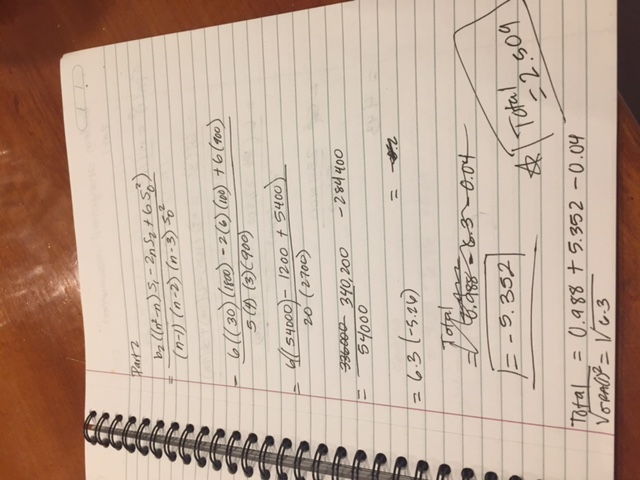 Part 2
= b2((n²-n) S1 - 2n S2 + 6 S0²)
(n-1) (n-2) (n-3) S0²
- 6((30)(1800) - 2(6)(100) + 6(900)
5(4)(3)(900)
= 6((54000) - 1200 + 5400)
20 (2700)
= 336000 340,200 -284400
54000
= 6.3 (-5.26) =
Total
= √ 0.988 - 6.3 - 0.04
= -5.352
☆ Total
= 2.509
Total = 0.988 + 5.352 - 0.04
= √6.3